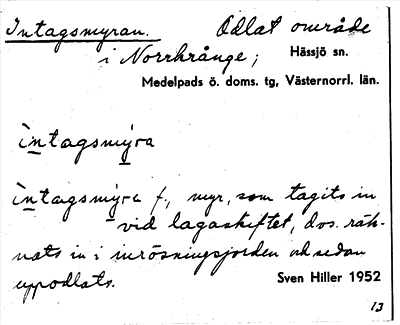 Intagsmyran. Odlat område
i Norrhånge; Hässjö sn.
Medelpads ö. doms. tg, Västernorrl. län.
ìntagsmy̱ra
ìntagsmy̱ra f., myr, som tagits in
vid lagaskiftet, dvs. räk-
nats in i inrösningsjorden och sedan
uppodlats. Sven Hiller 1952
13